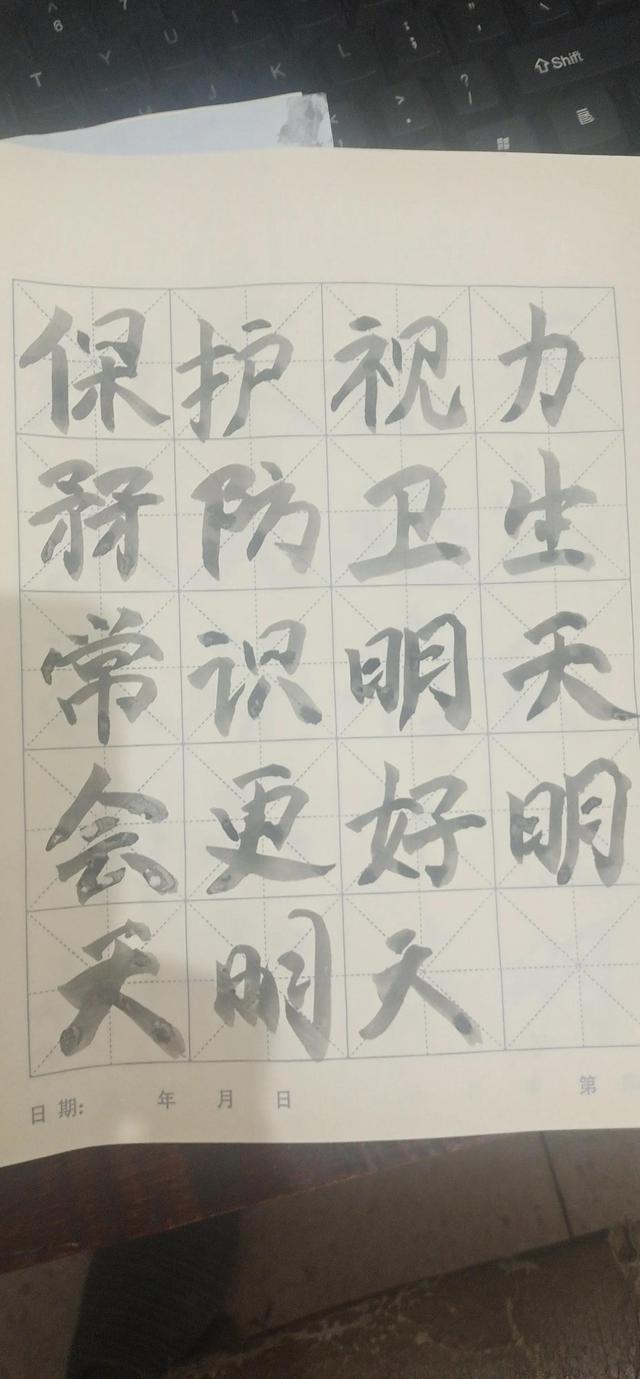 6
T Y U I
J K L
? /
> .
Shift
保护视力
防卫生
常识明天
会更好明
天明天
日期: 年 月 日 第